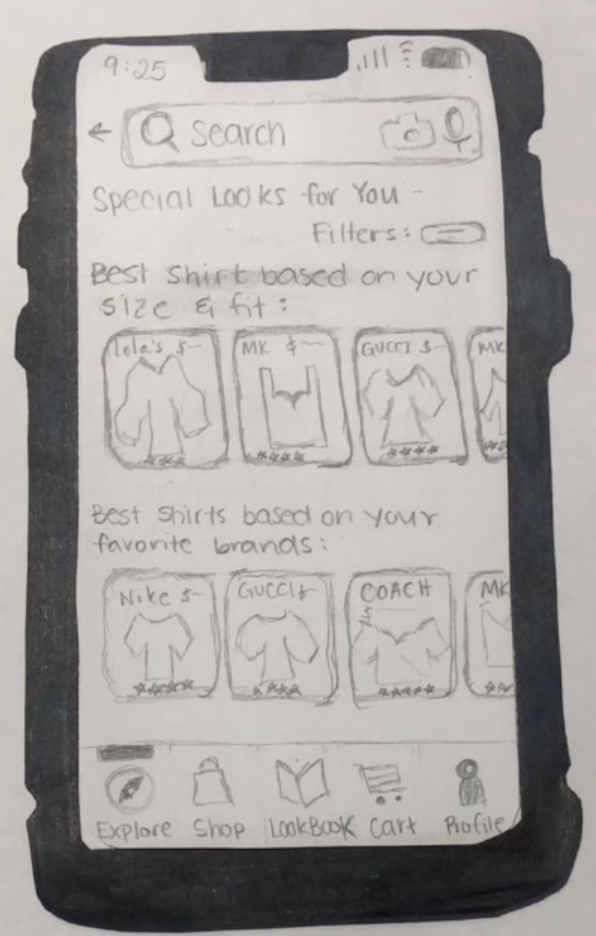 9:25
Search
Special Looks for You -
Filters:
Best Shirt based on your
size & fit:
Lola's $
MK $
GUCCI $
MK
Best Shirts based on your
favorite brands:
Nike $
GUCCI $
COACH
$
MK
Explore
Shop
LookBook
Cart
Profile